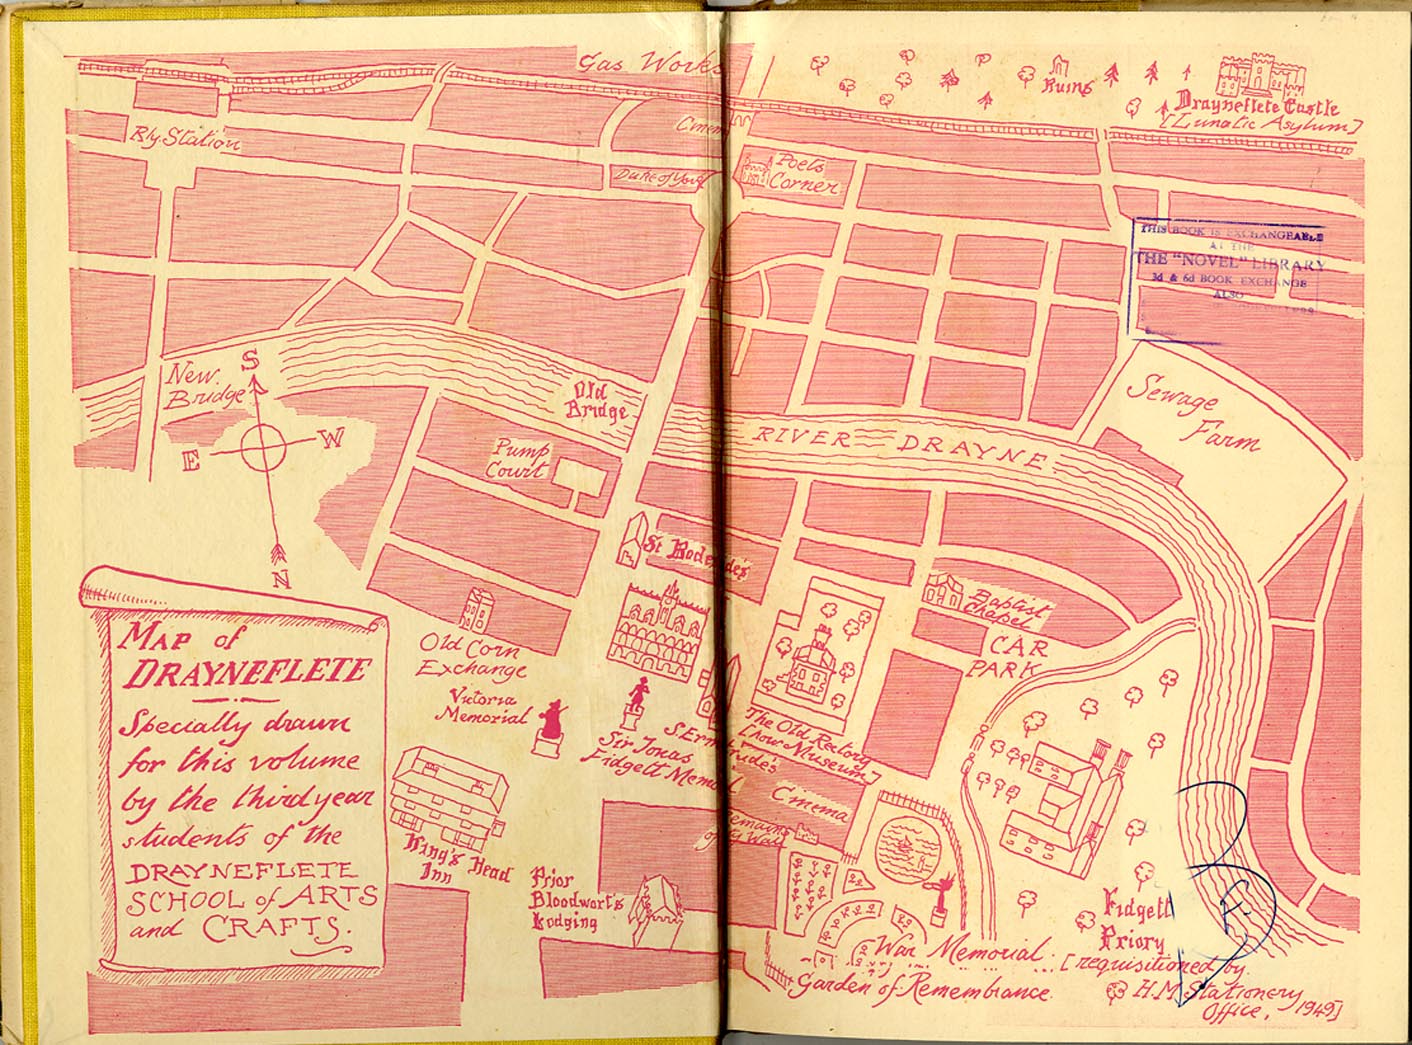 Gas Works
Ruins
Drayneflete Castle
[Lunatic Asylum]
Rly. Station
Cinema
Duke of York
Poets
Corner
THIS BOOK IS EXCHANGEABLE
AT THE
THE "NOVEL" LIBRARY
3d & 6d BOOK EXCHANGE
ALSO
New
Bridge
S
E
W
N
Old
Bridge
RIVER DRAYNE
Sewage
Farm
Pump
Court
Baptist
Chapel
CAR
PARK
Old Corn
Exchange
Victoria
Memorial
Sir Jonas
Fidgett
The Old Rectory
[now Museum]
Cinema
Remains
of City Wall
King's Head
Inn
Prior
Bloodwort's
Lodging
War Memorial
Garden of Remembrance
Fidgett
Priory
[requisitioned by
H.M. Stationery
Office, 1949]
MAP of
DRAYNEFLETE
Specially drawn
for this volume
by the third year
students of the
DRAYNEFLETE
SCHOOL of ARTS
and CRAFTS.